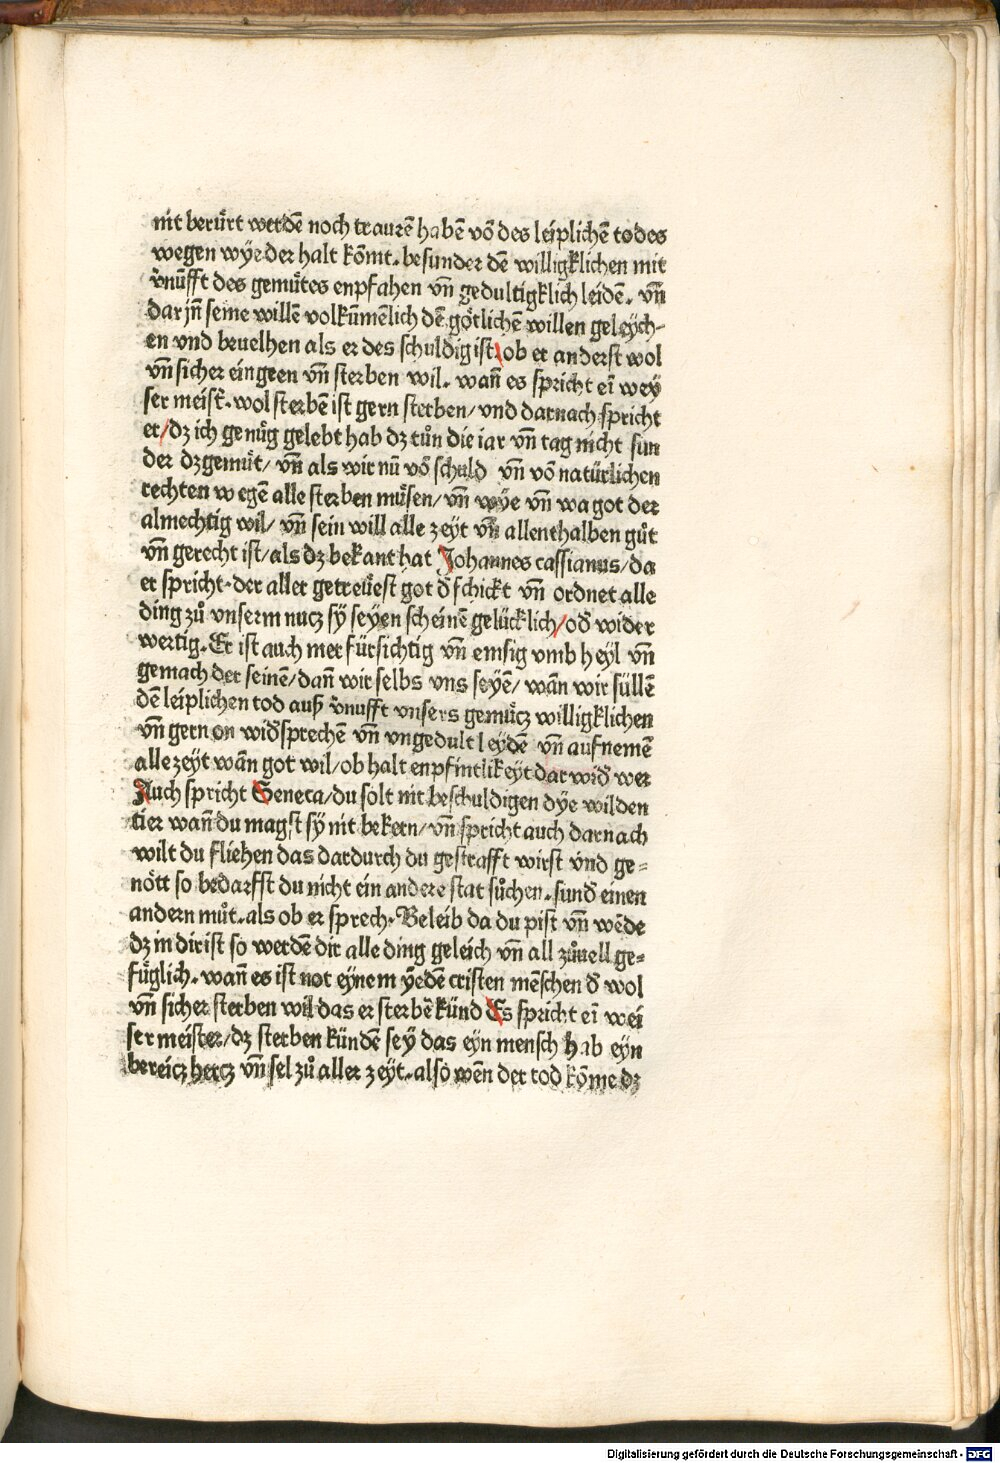 nit berürt werdē noch traurē habē vō des leiplichē todes
wegen wÿe der halt kōmt. besunder dē willigklichen mit
v̄nūfft des gemütes enpfahen vn̄ gedultigklich leidē. vn̄
dar jn̄ seine willē volkūmēlich dē götlichē willen geleÿch-
en vnd beuelhen als er des schuldig ist/ ob er anderst wol
vn̄ sicher ein geen vn̄ sterben wil. wan̄ es spricht eī weÿ
ser meist̄. wol sterbē ist gern sterben/ vnd darnach spricht
er/ dz ich genůg gelebt hab dz tůn die iar vn̄ tag nicht sun
der dz gemüt/ vn̄ als wir nū vō schuld vn̄ vō natürlichen
rechten wegē alle sterben müsen/ vn̄ wÿe vn̄ wa got der
almechtig wil/ vn̄ sein will alle zeÿt vn̄ allenthalben gůt
vn̄ gerecht ist/ als dz bekant hat Johannes cassianus/ da
er spricht. der aller getreüest got d̄ schickt vn̄ ordnet alle
ding zů vnserm nucz sÿ seyen scheinē gelücklich/ od̄ wider
wertig. Er ist auch mer fürsichtig vn̄ emsig vmb heyl vn̄
gemach der seinē/ dan̄ wir selbs vns seyē/ wān wir süllē
dē leiplichen tod auß v̄nufft vnsers gemücz willigklichen
vn̄ gern on wid̄sprechē vn̄ vngedult leydē vn̄ aufnemē
alle zeÿt wān got wil/ ob halt enpfintlikeÿt dar wid̄ wer
Auch spricht Seneca/ du solt nit beschuldigen dÿe wilden
tier wan̄ du magst sÿ nit bekern/ vn̄ spricht auch darnach
wilt du fliehen das dardurch du gestrafft wirst vnd ge=
nött so bedarfft du nicht ein andere stat sůchen. sund̄ einen
andern můt. als ob er sprech. Beleib da du pist vn̄ wēde
dz in dir ist so werdē dir alle ding geleich vn̄ all zůuell ge=
füglich. wan̄ es ist not eÿnem ÿedē cristen mēschen d̄ wol
vn̄ sicher sterben wil das er sterbē künd Es spricht eī wei
ser meister/ dz sterben kündē seÿ das eÿn mensch hab eÿn
bereicz hercz vn̄ sel zů aller zeÿt. also wēn der tod kōme dz
Digitalisierung gefördert durch die Deutsche Forschungsgemeinschaft - DFG